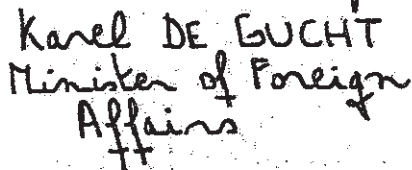 Karel DE GUCHT
Minister of Foreign
Affairs